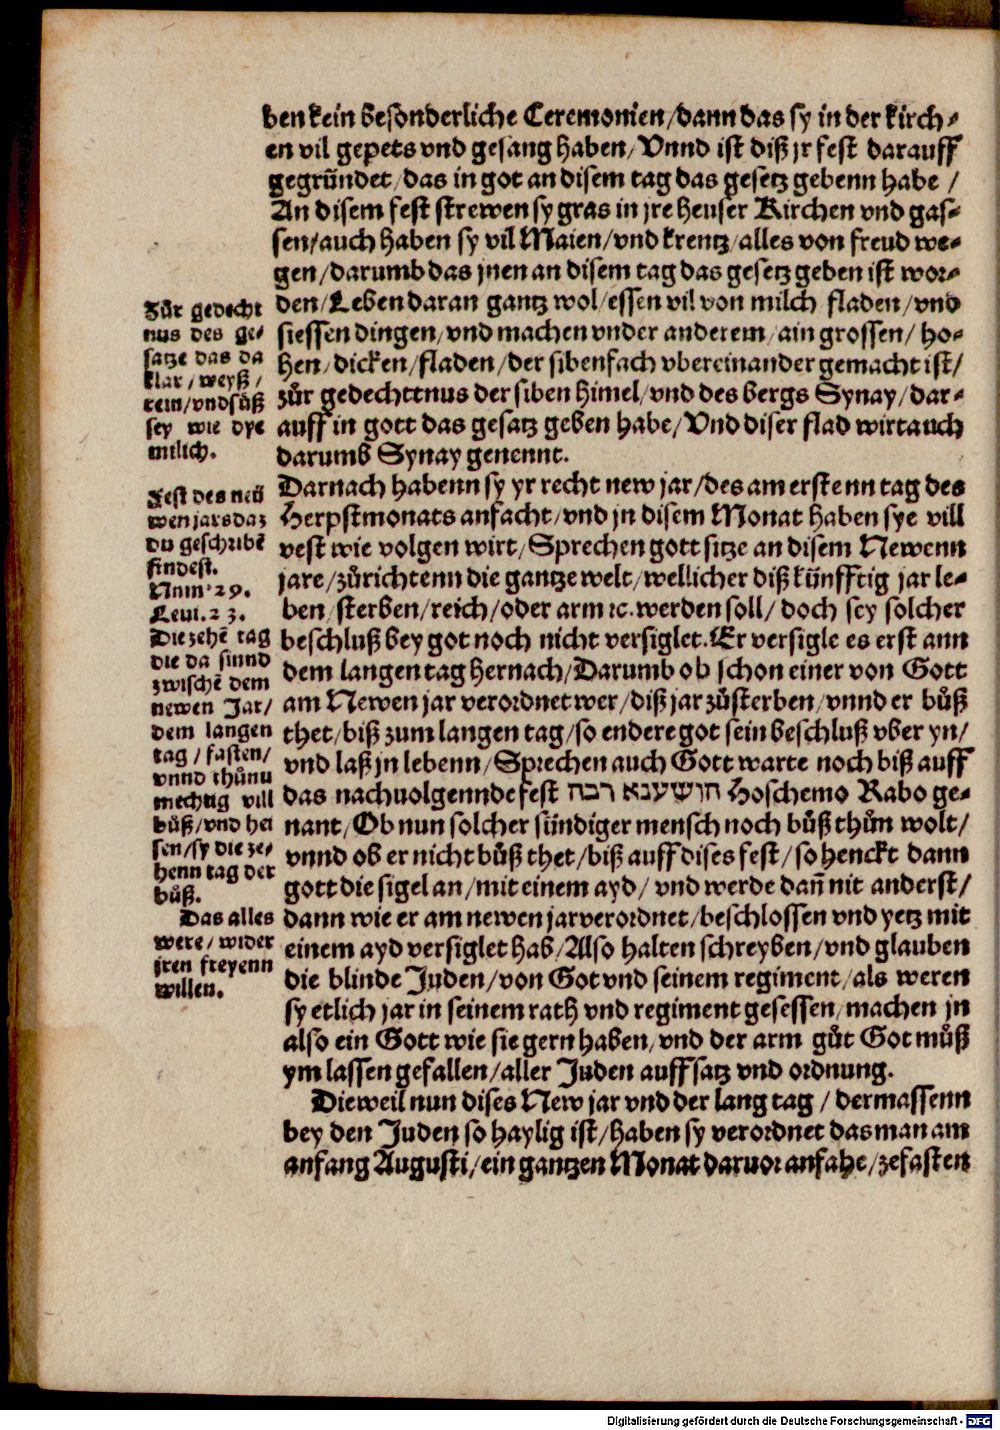 ben kein besonderliche Ceremonien/dann das sy in der kirch⸗
en vil gepets vnd gesang haben/Vnnd ist diß jr fest darauff
gegründet/das in got an disem tag das gesetz gebenn habe /
An disem fest strewen sy gras in jre heuser Kirchen vnd gas⸗
sen/auch haben sy vil Maien/vnd krentz/alles von freud we⸗
gen/darumb das jnen an disem tag das gesetz geben ist wor⸗
den/Leben daran gantz wol/essen vil von milch fladen/vnd
siessen dingen/vnd machen vnder anderem/ain grossen/ ho⸗
hen/dicken/fladen/der sibenfach vbereinander gemacht ist/
zůr gedechttnus der siben himel/vnd des bergs Synay/dar⸗
auff in gott das gesatz geben habe/Vnd diser flad wirt auch
darumb Synay genennt.
Für gedecht
nus des ge⸗
satze das da
klar/weyß/
rein/vnd sůß
sey wie dye
milich.
Darnach habenn sy yr recht new jar/des am erstenn tag des
Herpstmonats anfacht/vnd jn disem Monat haben sye vill
vest wie volgen wirt/Sprechen gott sitze an disem Newenn
jare/zůrichtenn die gantze welt/wellicher diß künfftig jar le⸗
ben/sterben/reich/oder arm ꝛc. werden soll/ doch sey solcher
beschluß bey got noch nicht versiglet. Er versigle es erst ann
dem langen tag hernach/Darumb ob schon einer von Gott
am Newen jar verordnet wer/diß jar zůsterben/vnnd er bůß
thet/biß zum langen tag/so endere got sein beschluß vber yn/
vnd laß jn lebenn/Sprechen auch Gott warte noch biß auff
das nachuolgennde fest הושענא רבה Hoschemo Rabo ge⸗
nant/Ob nun solcher sündiger mensch noch bůß thůn wolt/
vnnd ob er nicht bůß thet/biß auff dises fest/so henckt dann
gott die sigel an/mit einem ayd/ vnd werde dañ nit anderst/
dann wie er am newen jar verordnet/beschlossen vnd yetz mit
einem ayd versiglet hab/Also halten schreyben/vnd glauben
die blinde Juden/von Got vnd seinem regiment/als weren
sy etlich jar in seinem rath vnd regiment gesessen/machen jn
also ein Gott wie sie gern haben/vnd der arm gůt Got můß
ym lassen gefallen/aller Juden auffsatz vnd ordnung.
Fest des neü
wen jars daz
du geschribē
findest.
Num. 29.
Leui. 23.
Die zehē tag
die da sinnd
zwischē dem
newen Jar/
dem langen
tag/fasten/
vnnd thůnn
mechtig vill
bůß/vnd hei
sen/sy die ze⸗
henn tag der
bůß.
Das alles
were/wider
jren freyenn
willen.
Dieweil nun dises New jar vnd der lang tag / dermassenn
bey den Juden so haylig ist/haben sy verordnet das man am
anfang Augusti/ein gantzen Monat daruor anfahe/zefasten
Digitalisierung gefördert durch die Deutsche Forschungsgemeinschaft - DFG